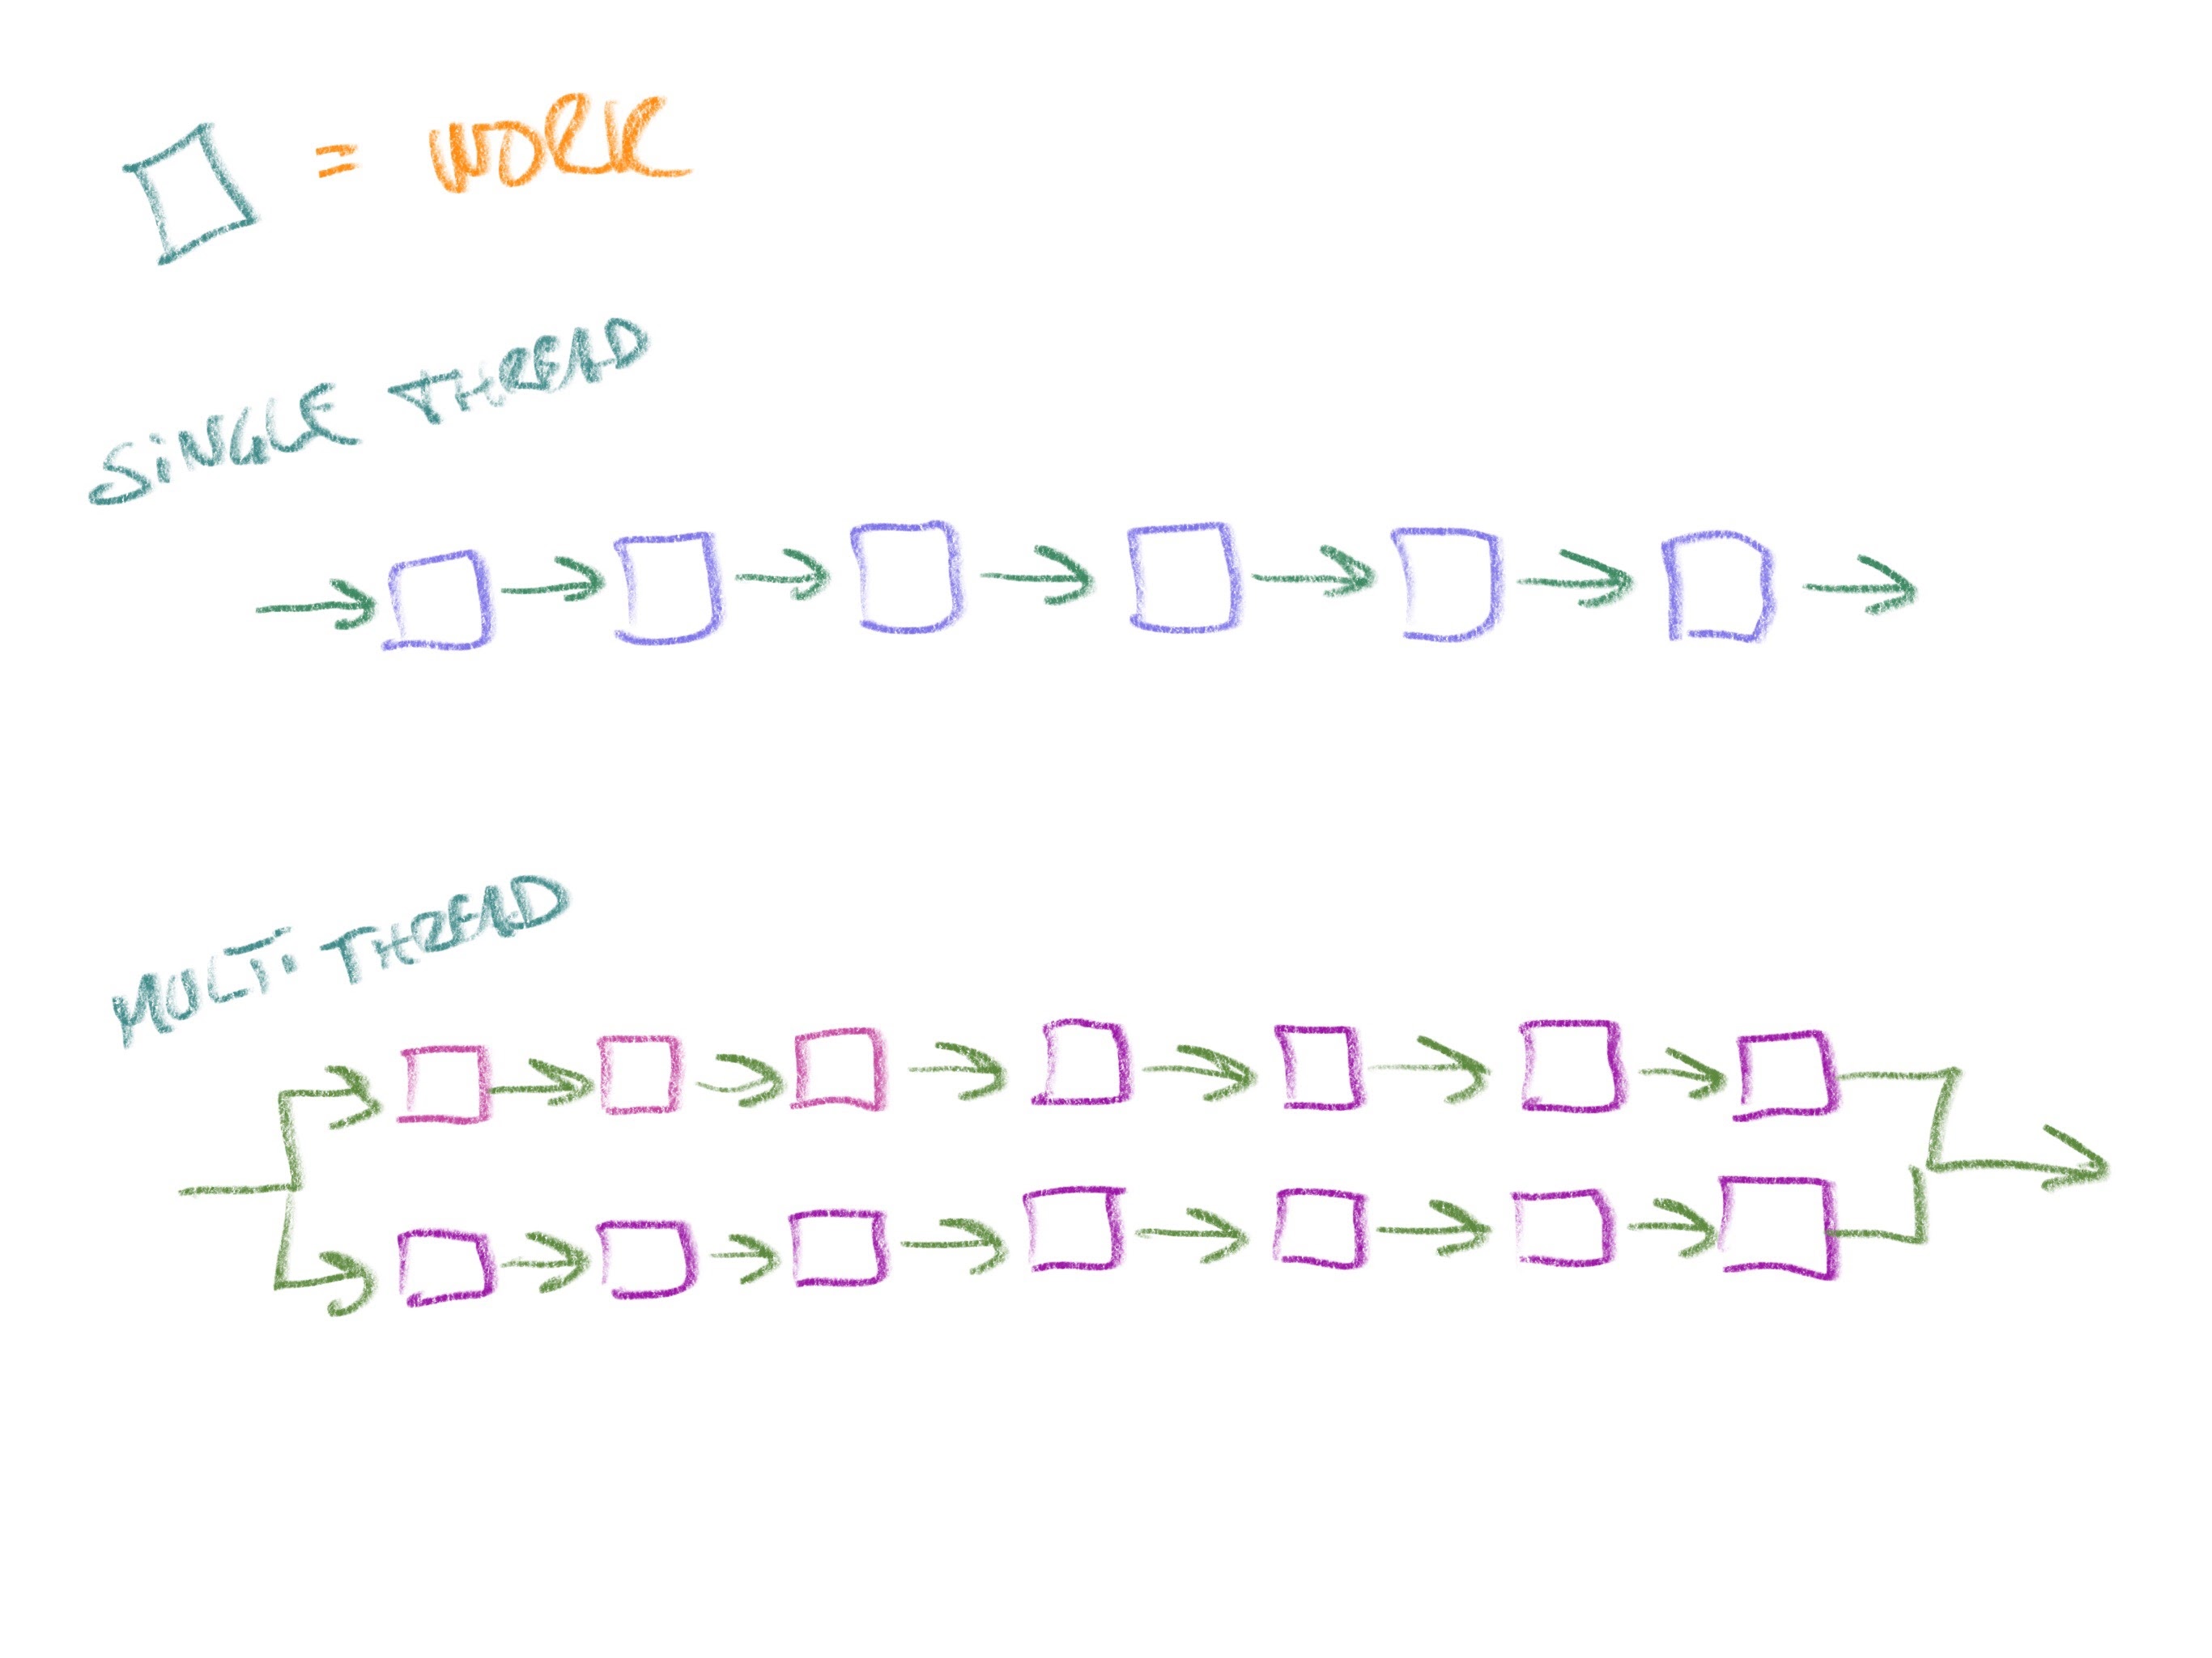 = WORK
SiNGLE THREAD
MULTi THREAD